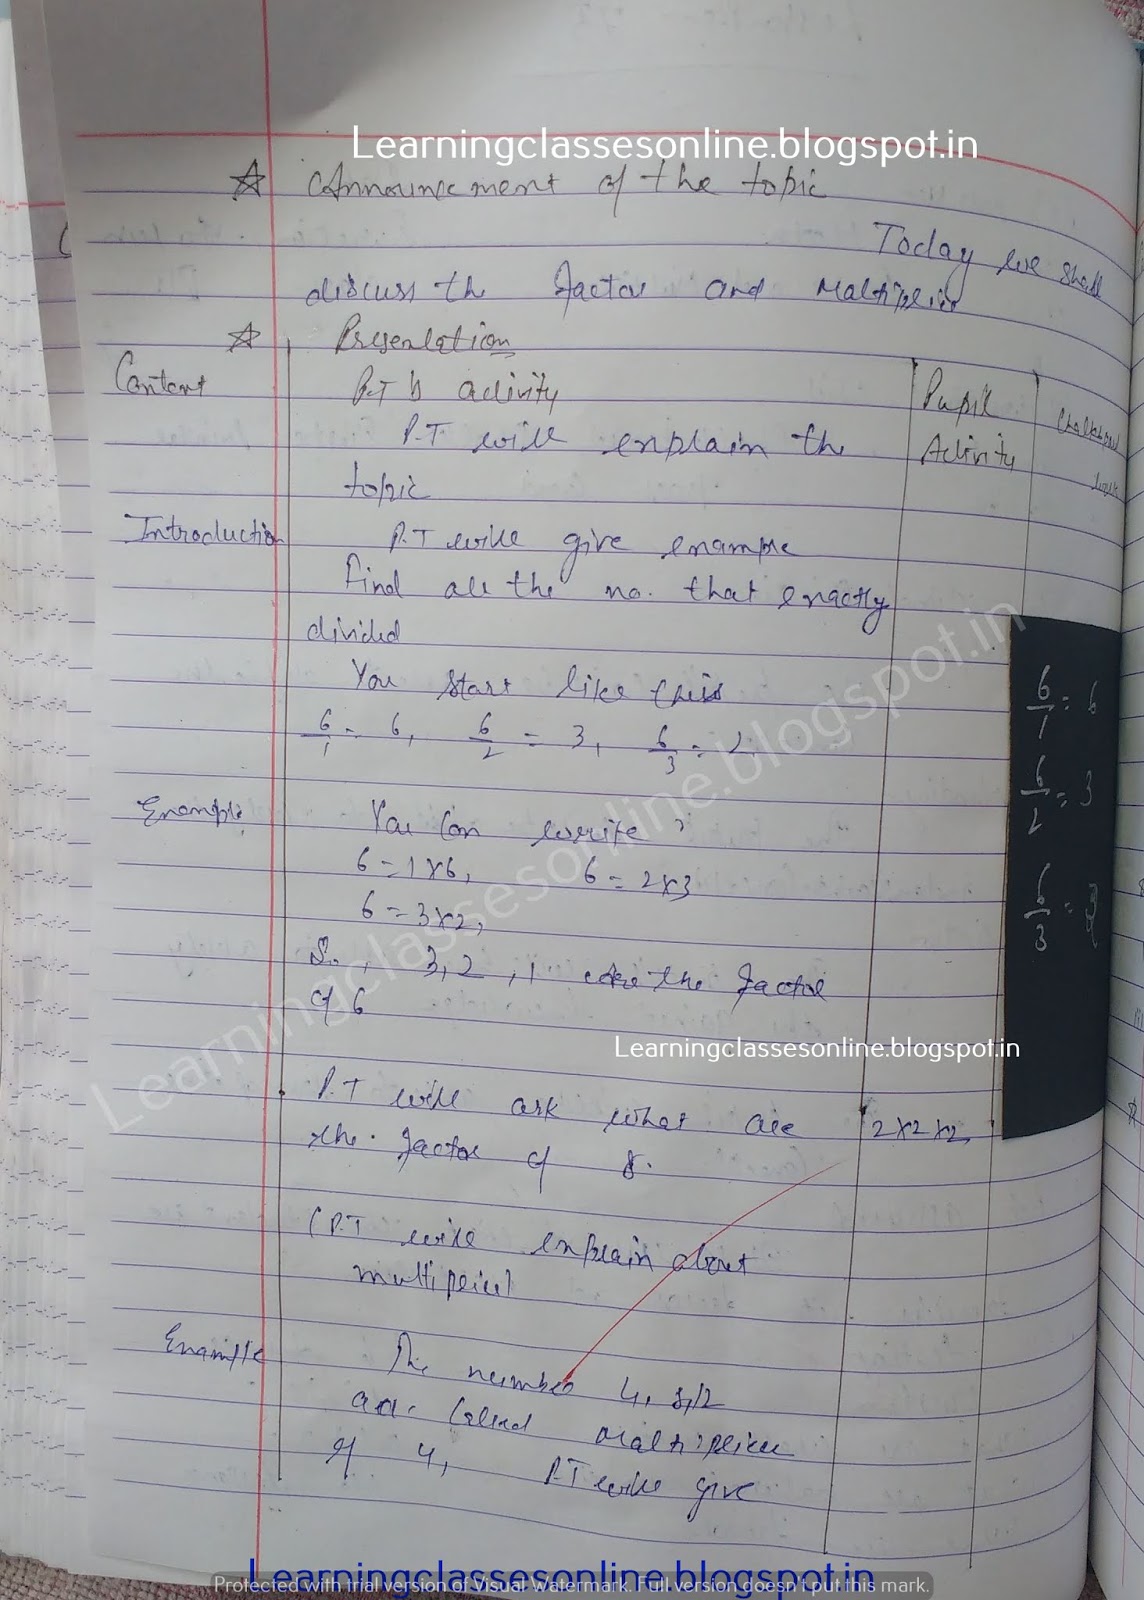 Learningclassesonline.blogspot.in
☆ Announcement of the topic
Today we shall
discuss the factor and Maltiplier
☆ Presentation
Content
P.T's activity
Pupil
Activity
P.T will enplain the
topic
Introduction
P.T will give enample
Find all the no. that enactly
divided
You start like this
6/1 = 6, 6/2 = 3, 6/3 = 2
6/1 = 6
6/2 = 3
6/3 = 2
Enample
You can write
6 = 1×6, 6 = 2×3
6 = 3×2,
So, 3, 2, 1 are the factor
of 6
Learningclassesonline.blogspot.in
Learningclassesonline.blogspot.in
P.T will ask what are 2×2×2
the factor of 8.
(P.T will enplain about
Enample
The number 4, 8, 12
are called
of 4, P.T will give
Learningclassesonline.blogspot.in
Protected with trial version of Visual Watermark. Full version doesn't put this mark.